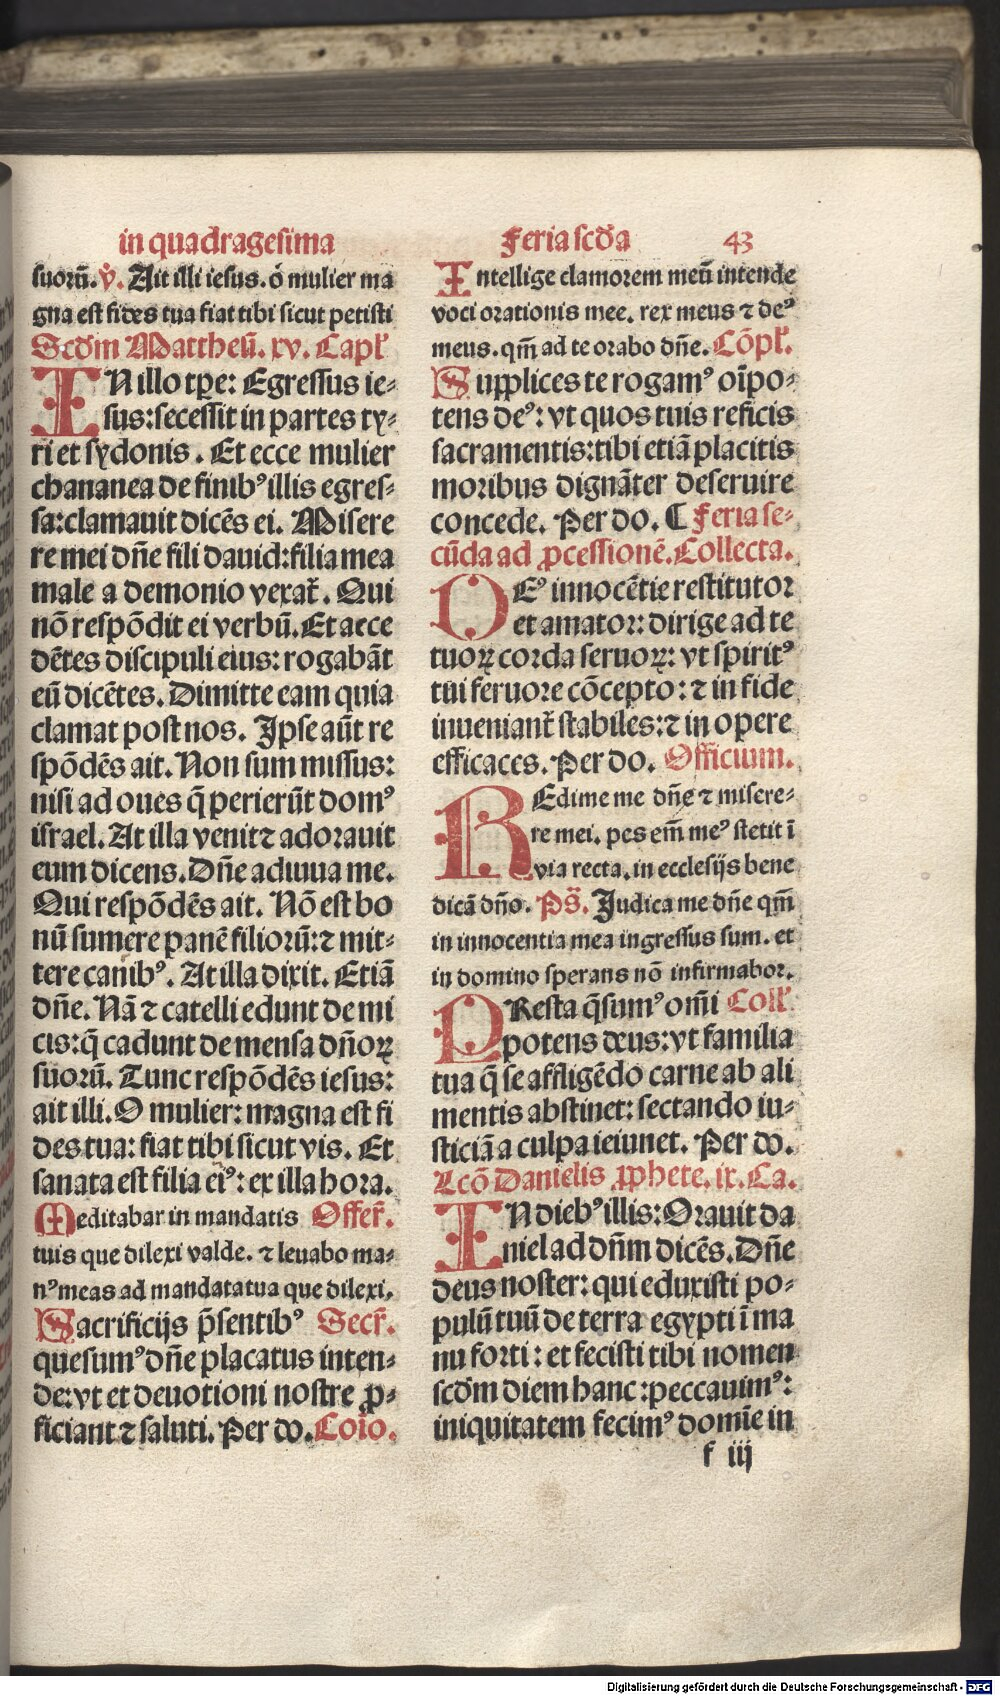 in quadragesima
suorū. v̊. Ait illi iesus. ó mulier ma
gna est fides tua fiat tibi sicut petisti
Scd̄m Mattheū. xv. Capl̄
IN illo tp̄e: Egressus ie⸗
sus: secessit in partes ty⸗
ri et sydonis. Et ecce mulier
chananea de finibꝰ illis egres⸗
sa: clamauit dicēs ei. Misere
re mei dn̄e fili dauid: filia mea
male a demonio vexat̄. Qui
nō respōdit ei verbū. Et acce
dētes discipuli eius: rogabāt
eū dicētes. Dimitte eam quia
clamat post nos. Ipse aūt re
spōdēs ait. Non sum missus:
nisi ad oues q̄ perierūt domꝰ
israel. At illa venit ⁊ adorauit
eum dicens. Dn̄e adiuua me.
Qui respōdēs ait. Nō est bo
nū sumere panē filiorū: ⁊ mit⸗
tere canibꝰ. At illa dixit. Etiā
dn̄e. Nā ⁊ catelli edunt de mi
cis: q̄ cadunt de mensa dn̄oꝝ
suorū. Tunc respōdēs iesus:
ait illi. O mulier: magna est fi
des tua: fiat tibi sicut vis. Et
sanata est filia eiꝰ: ex illa hora.
Meditabar in mandatis Offer̄.
tuis que dilexi valde. ⁊ leuabo ma⸗
nꝰ meas ad mandata tua que dilexi.
Sacrificijs p̄sentibꝰ Secr̄.
quesumꝰ dn̄e placatus inten⸗
de: vt et deuotioni nostre ꝓ⸗
ficiant ⁊ saluti. Per do. Coīo.
Feria scd̄a 43
Intellige clamorem meū intende
voci orationis mee. rex meus ⁊ deꝰ
meus. qm̄ ad te orabo dn̄e. Cōpl̄.
Supplices te rogamꝰ oīpo⸗
tens deꝰ: vt quos tuis reficis
sacramentis: tibi etiā placitis
moribus dignāter deseruire
concede. Per do. ¶ Feria se⸗
cūda ad ꝓcessionē. Collecta.
DEꝰ innocētie restitutor
et amator: dirige ad te
tuoꝝ corda seruoꝝ: vt spiritꝰ
tui feruore cōcepto: ⁊ in fide
inueniant̄ stabiles: ⁊ in opere
efficaces. Per do. Officium.
REdime me dn̄e ⁊ misere⸗
re mei. pes em̄ meꝰ stetit ī
via recta. in ecclesijs bene
dicā dn̄o. Ps̄. Judica me dn̄e qm̄
in innocentia mea ingressus sum. et
in domino sperans nō infirmabor.
PResta q̄sumꝰ om̄i Coll̄.
potens deus: vt familia
tua q̄ se affligēdo carne ab ali
mentis abstinet: sectando iu⸗
sticiā a culpa ieiunet. Per do.
Lcō Danielis ꝓphete. ix. Ca.
IN diebꝰ illis: Orauit da
niel ad dn̄m dicēs. Dn̄e
deus noster: qui eduxisti po⸗
pulū tuū de terra egypti ī ma
nu forti: et fecisti tibi nomen
scd̄m diem hanc: peccauimꝰ:
iniquitatem fecimꝰ domīe in
f iij
Digitalisierung gefördert durch die Deutsche Forschungsgemeinschaft - DFG